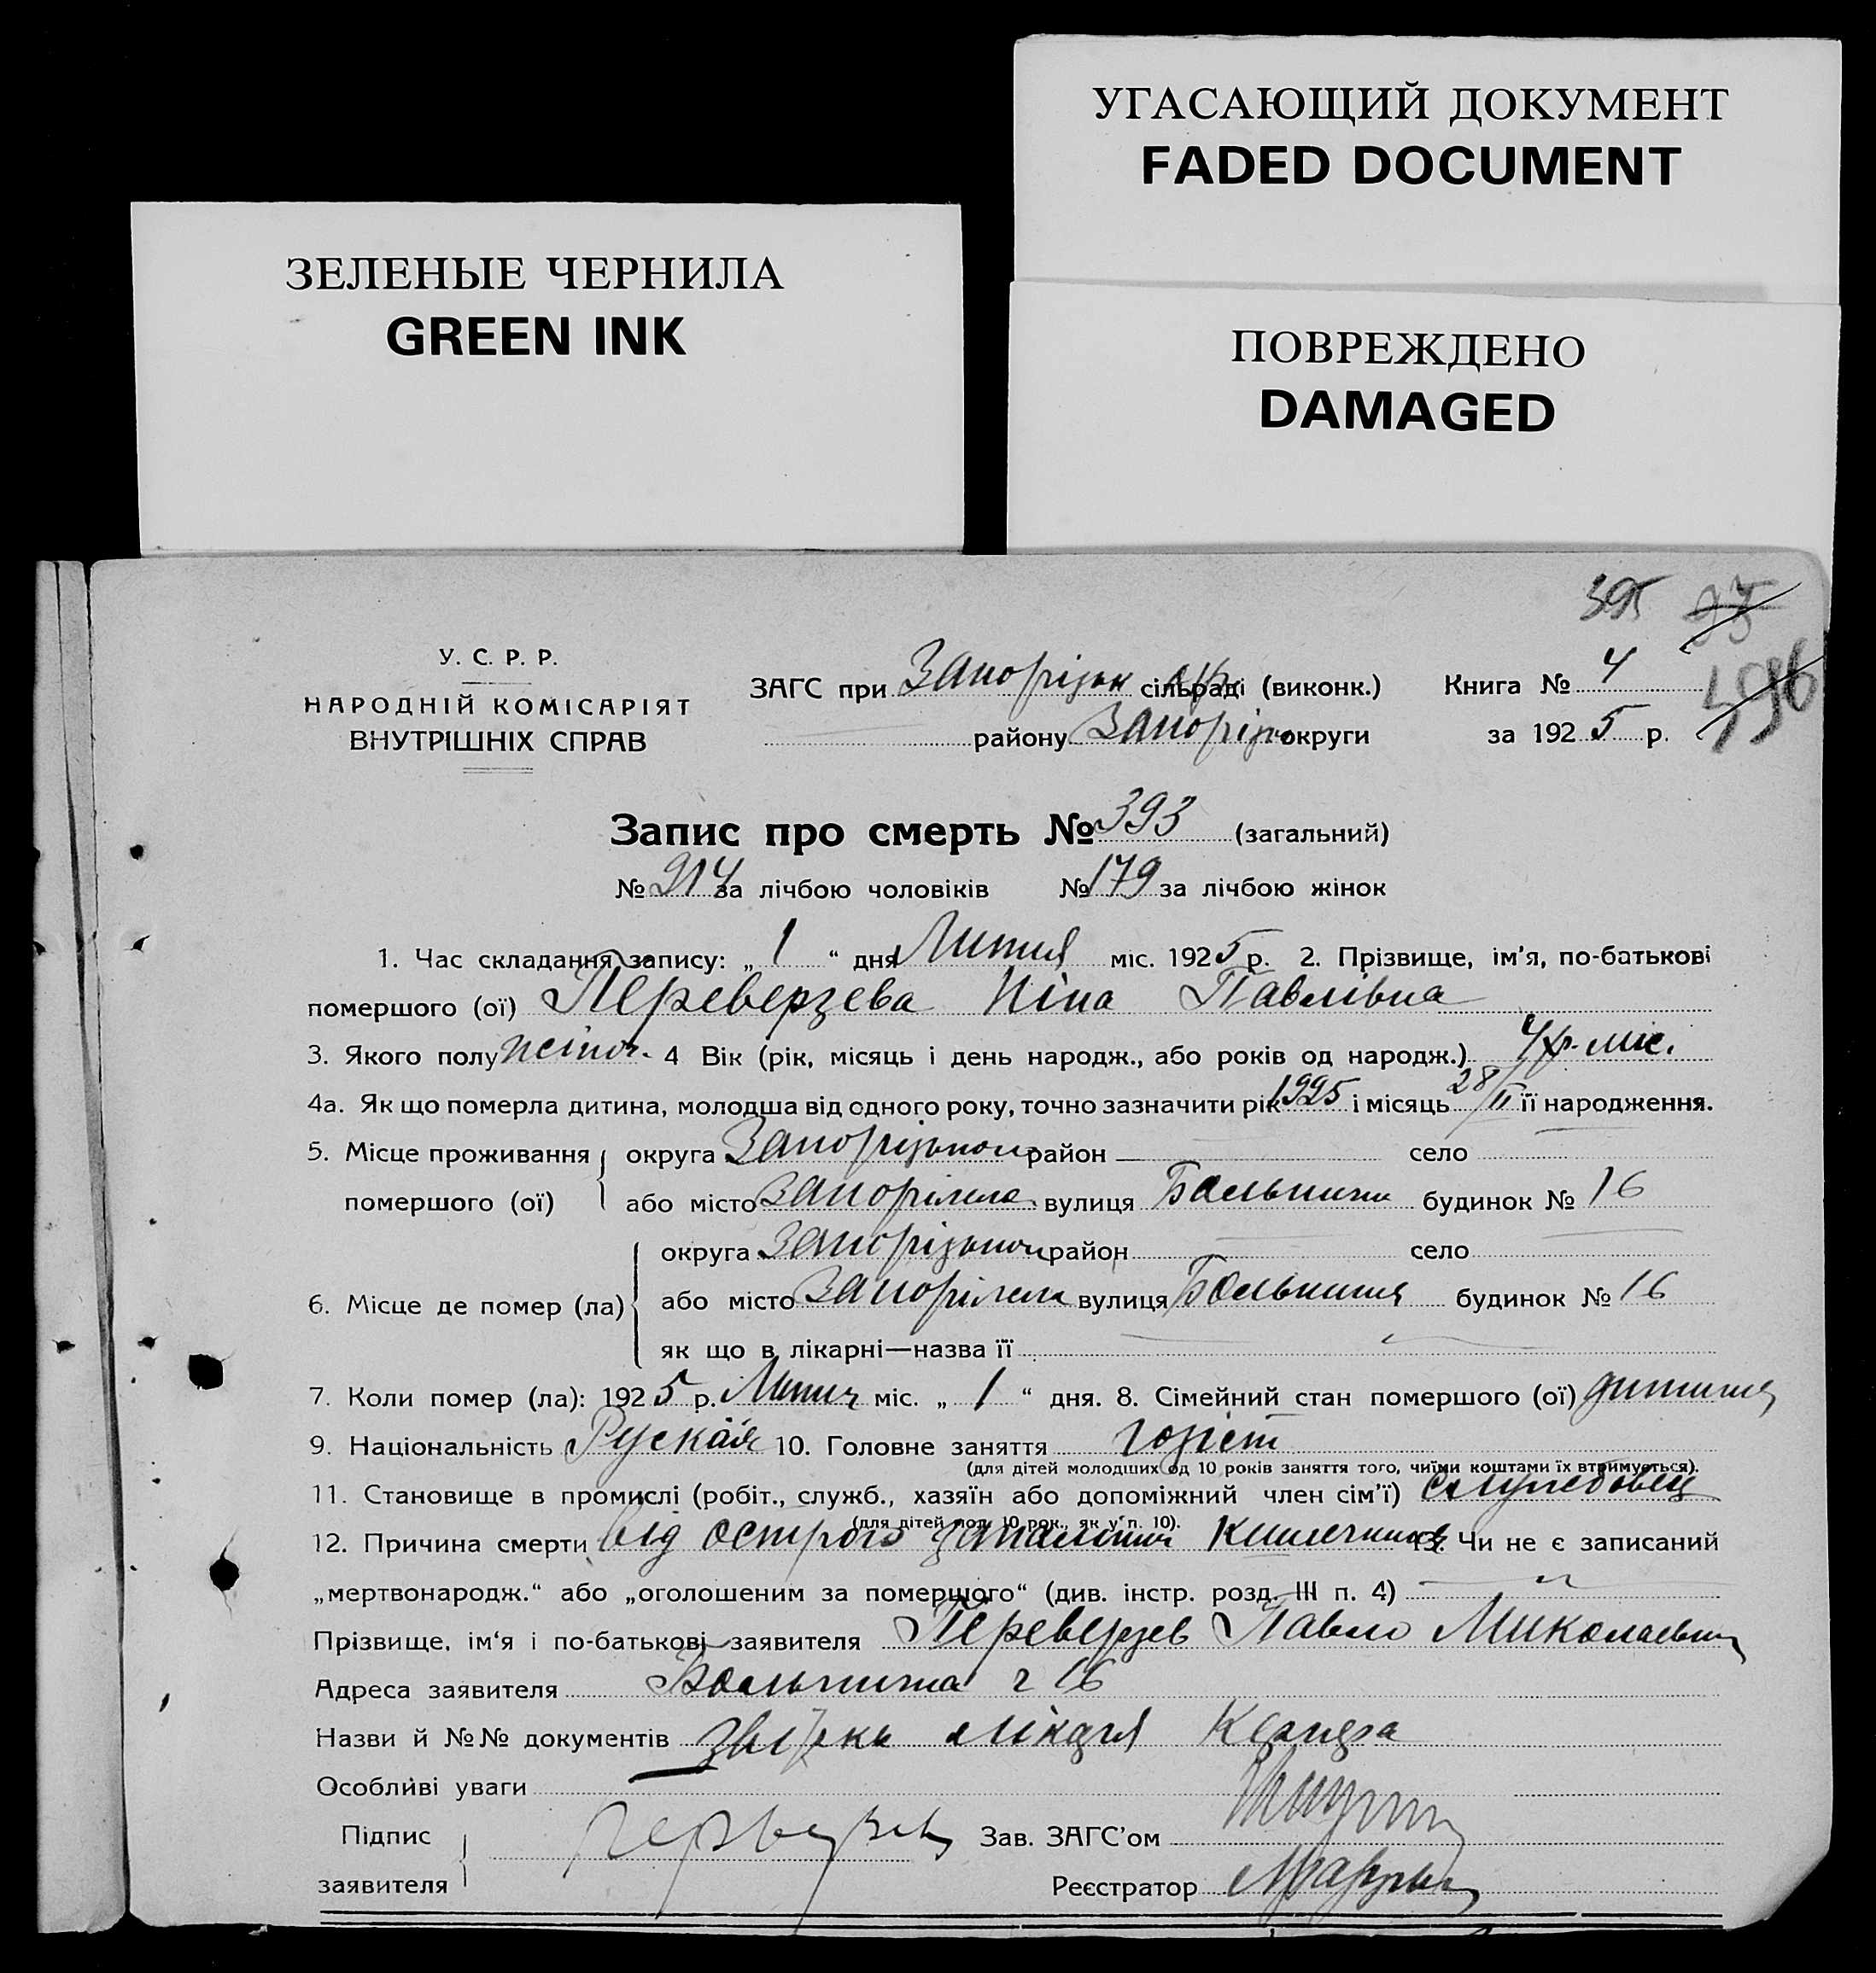 УГАСАЮЩИЙ ДОКУМЕНТ
FADED DOCUMENT
ЗЕЛЕНЫЕ ЧЕРНИЛА
GREEN INK
ПОВРЕЖДЕНО
DAMAGED
395
У. С. Р. Р.
НАРОДНІЙ КОМІСАРІЯТ
ВНУТРІШНІХ СПРАВ
ЗАГС при Запорізьк окр. сільраді (виконк.) Книга № 4
району Запорізьк округи за 1925 р.
Запис про смерть № 393 (загальний)
№ 214 за лічбою чоловіків № 179 за лічбою жінок
1. Час складання запису: „ 1 “ дня Липня міс. 1925 р. 2. Прізвище, ім'я, по-батькові
помершого (ої) Переверзева Ніна Павлівна
3. Якого полу жіноч. 4 Вік (рік, місяць і день народж., або років од народж.) 4 міс.
4а. Як що померла дитина, молодша від одного року, точно зазначити рік 1925 і місяць 28/II її народження.
5. Місце проживання округа Запорізької район село
помершого (ої) або місто Запоріжжя вулиця Больнична будинок № 16
округа Запорізької район село
6. Місце де помер (ла) або місто Запоріжжя вулиця Больнична будинок № 16
як що в лікарні—назва її
7. Коли помер (ла): 1925 р. Липня міс. „ 1 “ дня. 8. Сімейний стан помершого (ої) дитина
9. Національність Руская 10. Головне заняття
(для дітей молодших од 10 років заняття того, чиїми коштами їх втримується).
11. Становище в промислі (робіт., служб., хазяїн або допоміжний член сім'ї) служебовец
(для дітей мол. 10 рок., як у п. 10).
12. Причина смерти від острого запаління кишечника 13. Чи не є записаний
„мертвонародж.“ або „оголошеним за помершого“ (див. інстр. розд. III п. 4)
Прізвище, ім'я і по-батькові заявителя Переверзев Павло Миколаевич
Адреса заявителя Больнична 16
Назви й №№ документів лікаря
Особливі уваги
Підпис
заявителя
Зав. ЗАГС'ом
Реєстратор